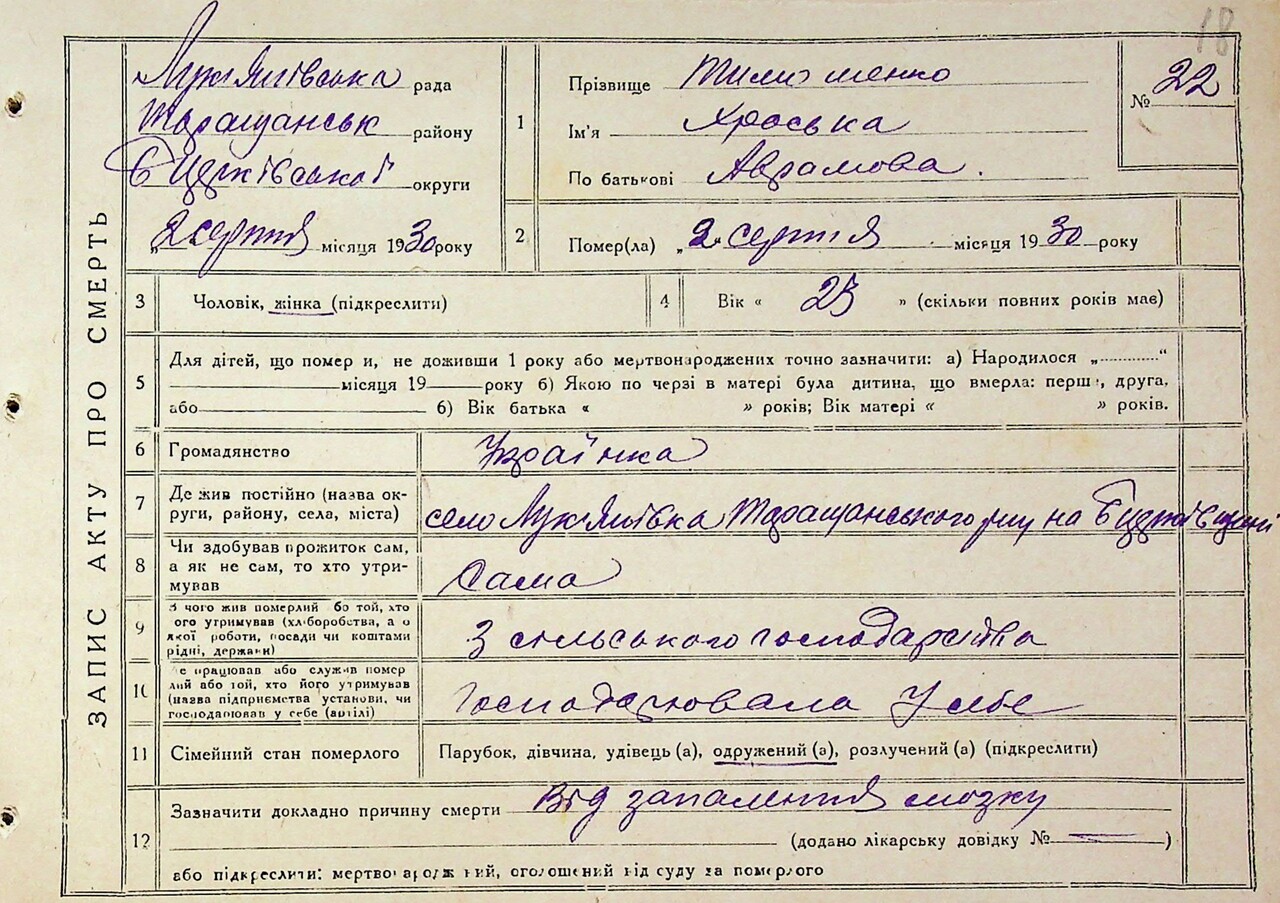 18
ЗАПИС АКТУ ПРО СМЕРТЬ
Лук'янівська рада
Таращанськ району
Б Церківської округи
„2 серпня місяця 1930 року
1 Прізвище Тимошенко
Ім'я Хроська
По батькові Аврамова.
№ 22
2 Помер(ла) „2" серпня місяця 1930 року
3 Чоловік, жінка (підкреслити)
4 Вік « 25 » (скільки повних років має)
5 Для дітей, що помер и, не доживши 1 року або мертвонароджених точно зазначити: а) Народилося „ “
місяця 19 року б) Якою по черзі в матері була дитина, що вмерла: перш, друга,
або б) Вік батька « » років; Вік матері « » років.
6 Громадянство Українка
7 Де жив постійно (назва ок-
руги, району, села, міста) село Лук'янівка Таращанського р-ну на Бцерківщині
8 Чи здобував прожиток сам,
а як не сам, то хто утри-
мував Сама
9 З чого жив померлий бо той, хто
ого утримував (хліборобства, а о
якої роботи, посади чи коштами
рідні, держави) З сільського господарства
10 е працював або служив помер
лий або той, хто його утримував
(назва підприємства установи, чи
господарював у себе (артілі) Господарювала У себе
11 Сімейний стан померлого Парубок, дівчина, удівець (а), одружений (а), розлучений (а) (підкреслити)
12 Зазначити докладно причину смерти Від запалення мозку
(додано лікарську довідку № )
або підкреслити: мертвонароджений, оголошений від суду за померлого